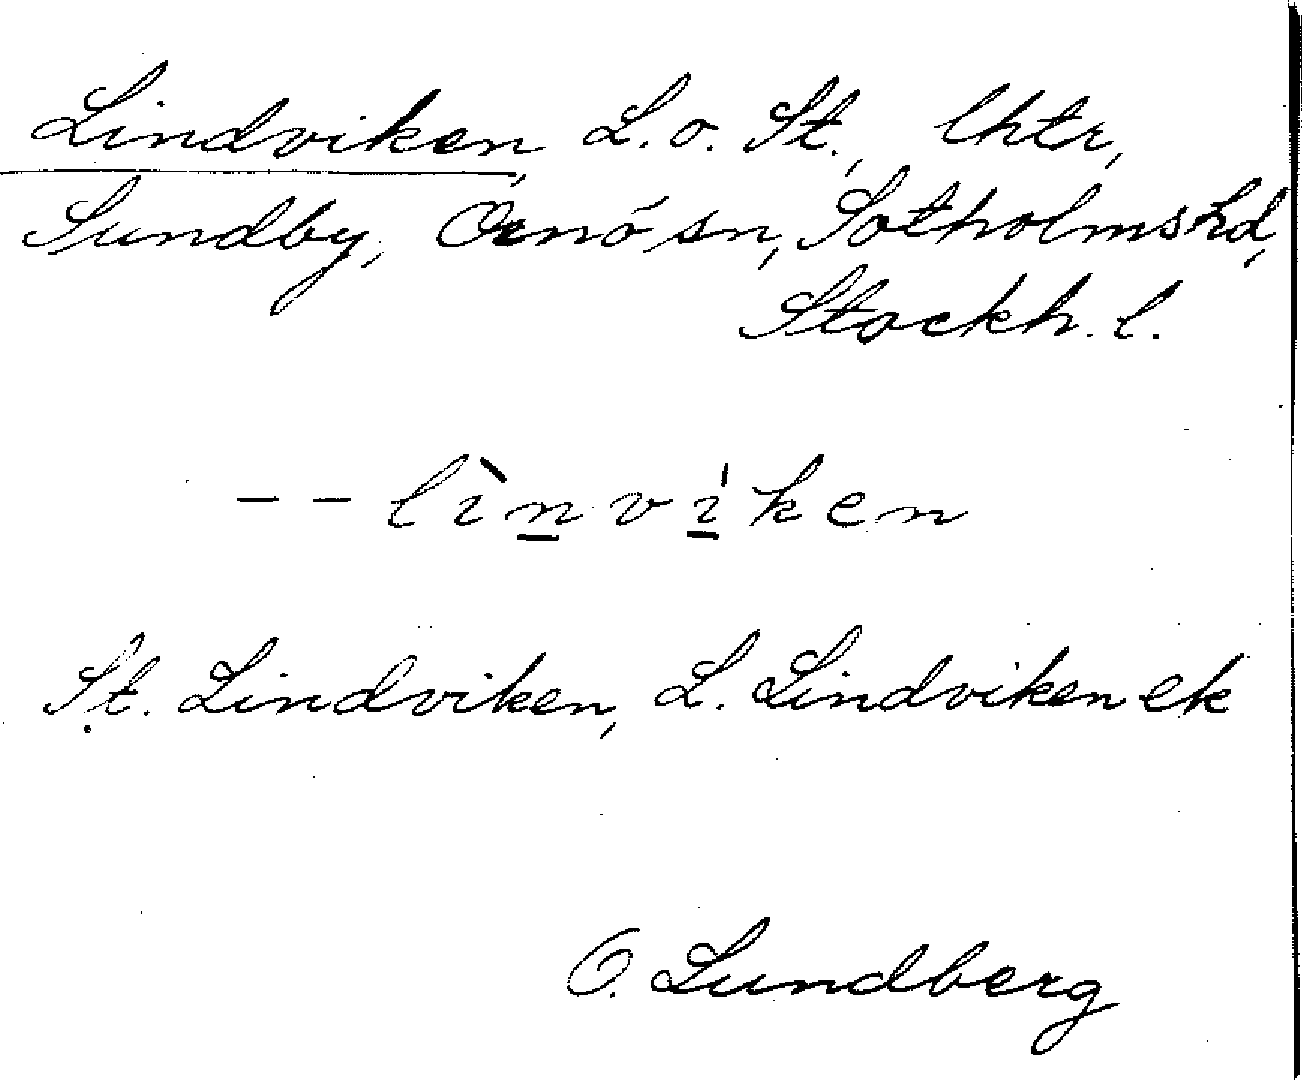 Lindviken, L. o. St., lhtr,
Sundby, Ornö sn, Sotholms hd,
Stockh. l.
-- lìnvíken
St. Lindviken, L. Lindviken ek
O. Lundberg